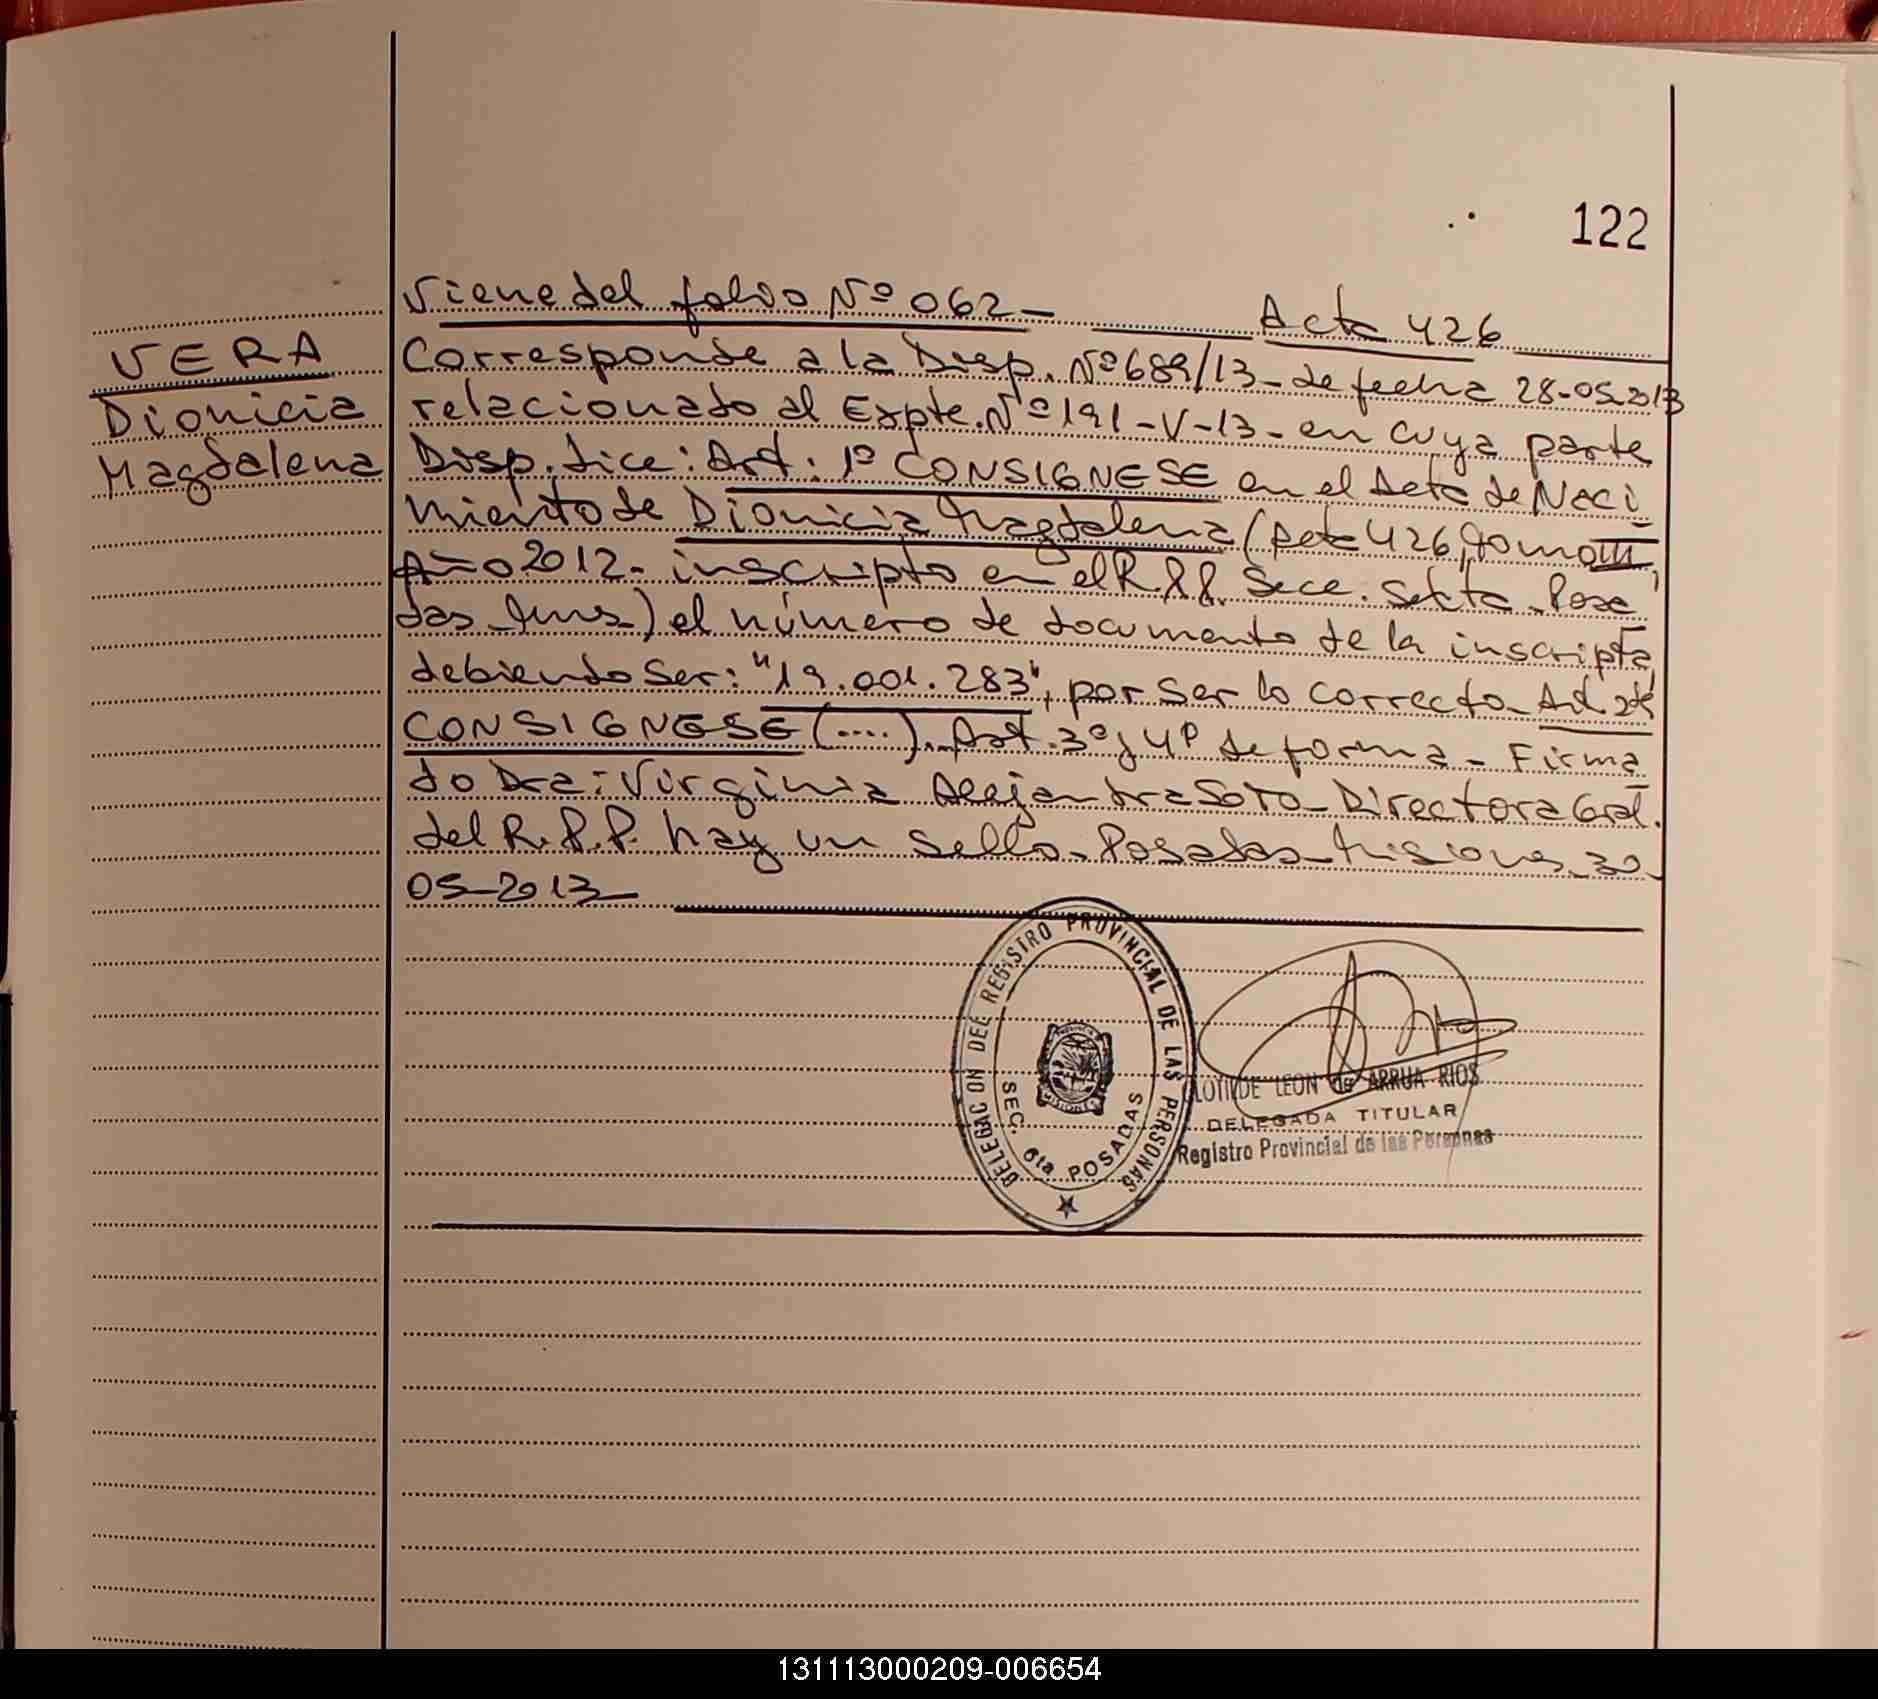 122
Viene del folio Nº 062- Acta 426
VERA
Dionicia
Magdalena
Corresponde a la Disp. Nº 689/13- de fecha 28-05-2013
relacionado al Expte. Nº 191-V-13- en cuya parte
Disp. dice: Art: 1º CONSIGNESE en el Acta de Naci
miento de Dionicia Magdalena (Acta 426, Tomo III
Año 2012- inscripto en el R.P.P. Secc. Sexta- Posa
das- Mns-) el número de documento de la inscripta
debiendo ser: "19.001.283", por ser lo correcto- Art. 2º
CONSIGNESE (....). Art. 3º y 4º de forma- Firma
do Dra: Virginia Alejandra Soto- Directora Gral.
del R.P.P. hay un sello- Posadas- Misiones, 30-
05-2013-
DELEGACION DEL REGISTRO PROVINCIAL DE LAS PERSONAS
SEC. 6ta. POSADAS
CLOTILDE LEON de ARRUA RIOS
DELEGADA TITULAR
Registro Provincial de las Personas
131113000209-006654